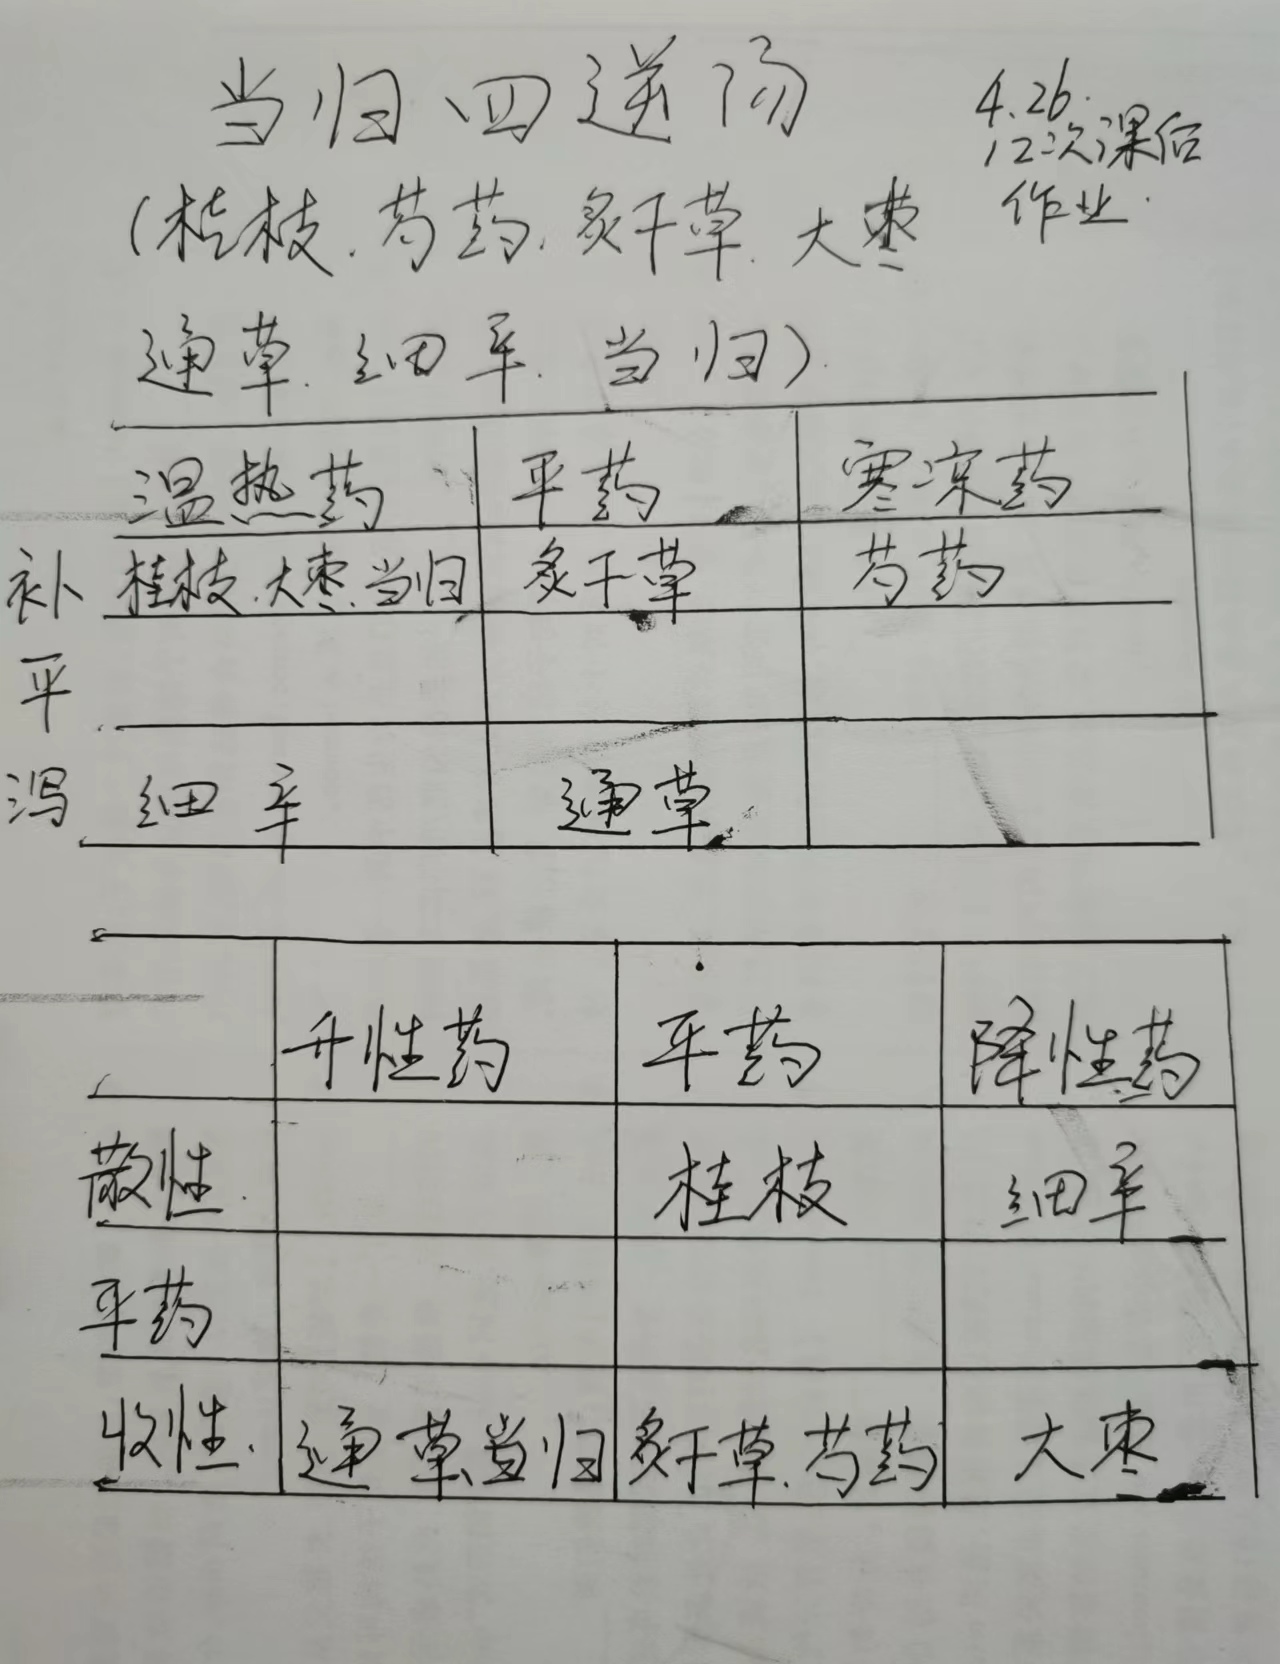 当归四逆汤
4.26.
12次课后
作业.
(桂枝.芍药.炙干草.大枣
通草.细辛.当归).
温热药 平药 寒凉药
补 桂枝.大枣.当归 炙干草 芍药
平
泻 细辛 通草
升性药 平药 降性药
散性. 桂枝 细辛
平药
收性. 通草、当归 炙干草.芍药 大枣